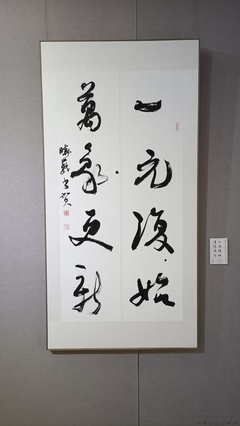 一元復始
萬象更新